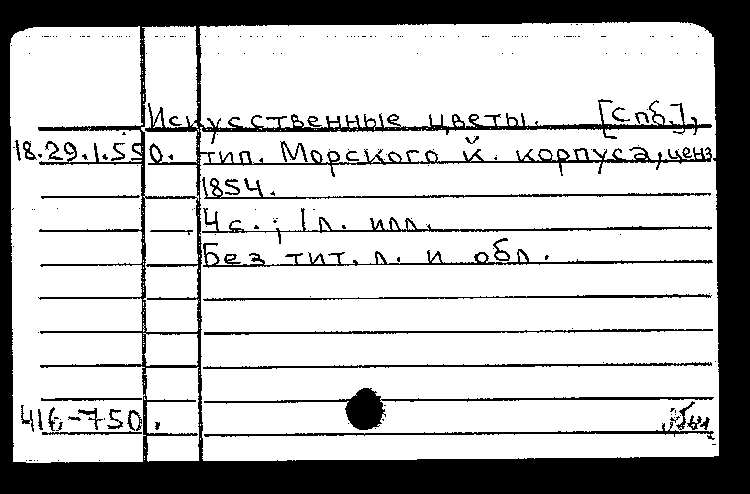 Искусственные цветы. [Спб.],
18.29.1.550. тип. Морского к. корпуса, ценз.
1854.
4 с.; 1 л. илл.
Без тит. л. и обл.
416-750.